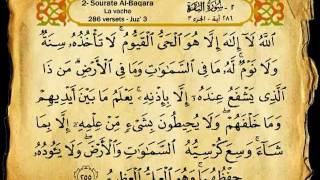 2- Sourate Al-Baqara
La vache
286 versets - Juz' 3
٢ - سورة البقرة
٢٨٦ آية - الجزء ٣
اللَّهُ لَا إِلَٰهَ إِلَّا هُوَ الْحَيُّ الْقَيُّومُ ۚ لَا تَأْخُذُهُ سِنَةٌ
وَلَا نَوْمٌ ۚ لَهُ مَا فِي السَّمَاوَاتِ وَمَا فِي الْأَرْضِ ۗ مَنْ ذَا
الَّذِي يَشْفَعُ عِنْدَهُ إِلَّا بِإِذْنِهِ ۚ يَعْلَمُ مَا بَيْنَ أَيْدِيهِمْ
وَمَا خَلْفَهُمْ ۖ وَلَا يُحِيطُونَ بِشَيْءٍ مِنْ عِلْمِهِ إِلَّا بِمَا
شَاءَ ۚ وَسِعَ كُرْسِيُّهُ السَّمَاوَاتِ وَالْأَرْضَ ۖ وَلَا يَئُودُهُ
حِفْظُهُمَا ۚ وَهُوَ الْعَلِيُّ الْعَظِيمُ ٢٥٥